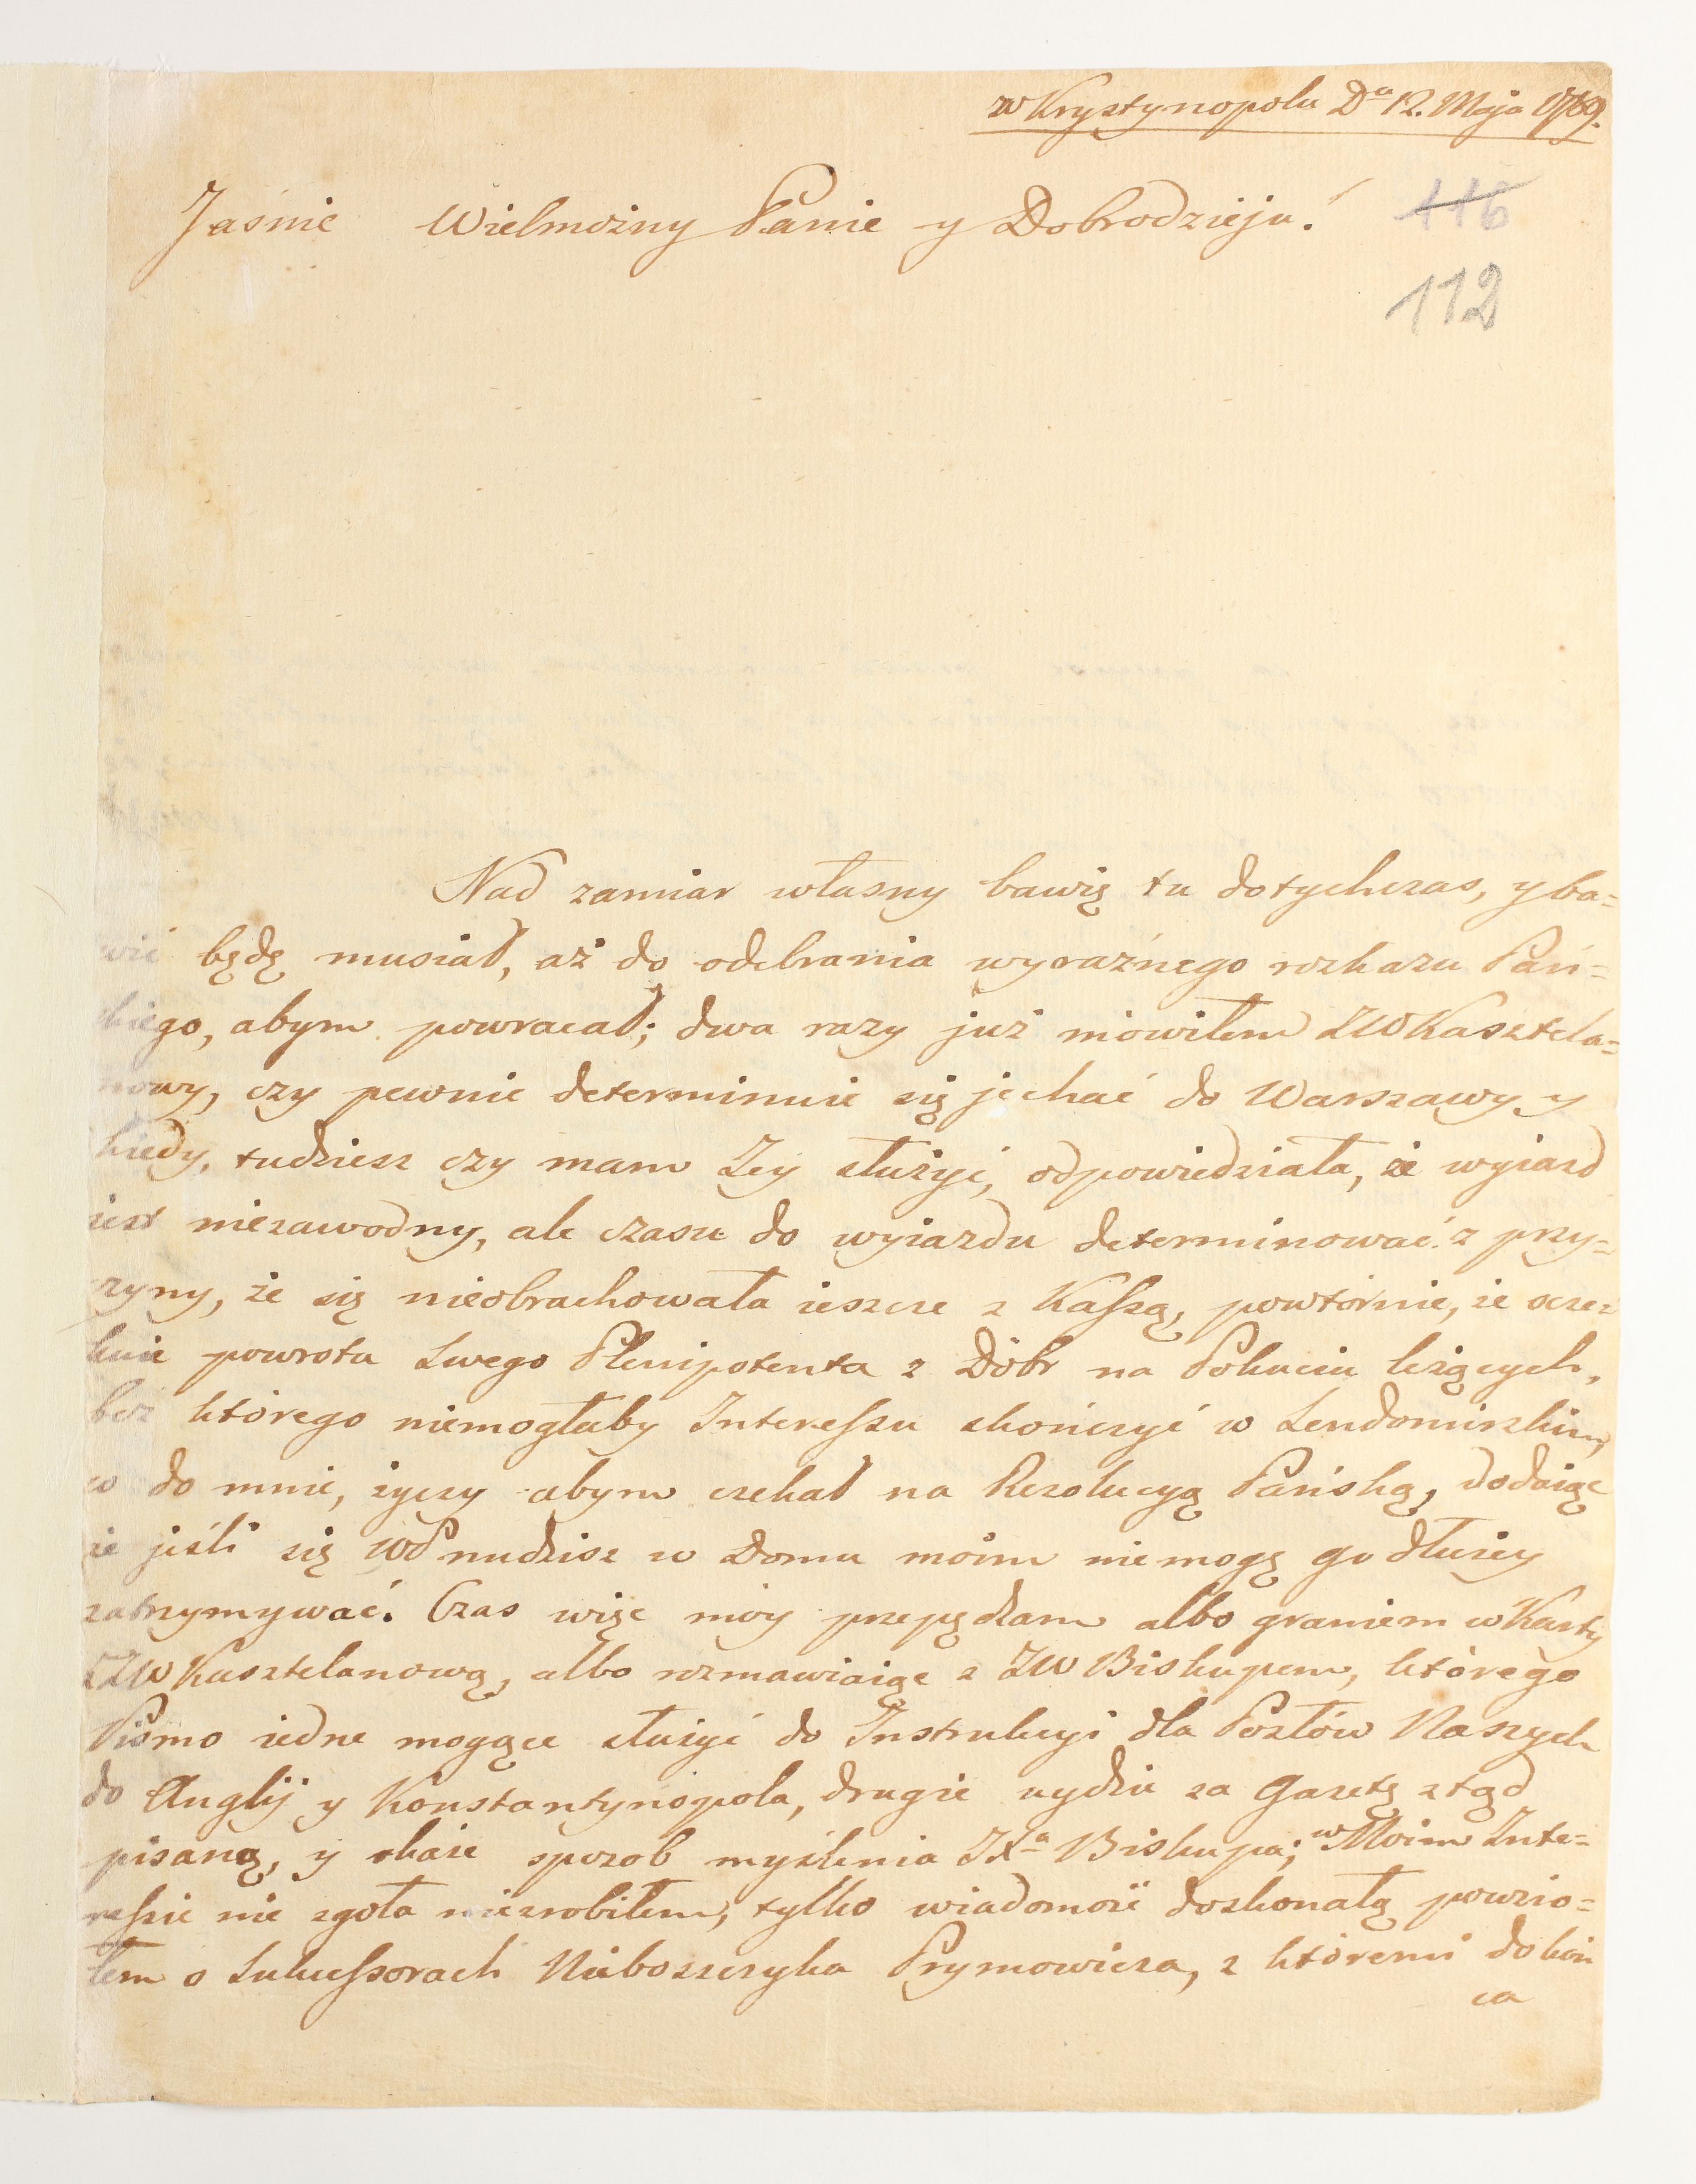 w Krystynopolu Da 12. Maja 1769.
Jaśnie Wielmożny Panie y Dobrodzieju!
116
112
Nad zamiar własny bawię tu dotychczas, y ba=
wić będę musiał, aż do odebrania wyraźnego rozkazu Pań=
skiego, abym powracał; dwa razy już mówiłem JW Kasztela=
nowy, czy pewnie determinuie się jechać do Warszawy y
kiedy, tudziesz czy mam Jey służyć, odpowiedziała, że wyiazd
iest niezawodny, ale czasu do wyiazdu determinować z przy=
czyny, że się nieobrachowała ieszcze z Kassą, powtórnie, że ocze=
kuie powrotu Swego Plenipotenta z Dóbr na Pokuciu leżących,
bez którego niemogłaby Interessu skończyć w Sendomirskim,
co do mnie, życzy abym czekał na Rezolucyą Pańską, dodaiąc
że jeśli się WP nudzisz w Domu moim nie mogę go dłużey
zatrzymywać. Czas więc móy przepędzam albo graniem w Karty
z JW Kasztelanową, albo rozmawiaiąc z JW Biskupem, którego
Pismo iedne mogące służyć do Instrukcyi dla Posłów Naszych
do Anglij y Konstantynopola, drugie uydzie za Gazetę ztąd
pisaną, y okaże sposob myślenia JXa Biskupa; w Moim Inte=
ressie nie zgoła niezrobiłem, tylko wiadomość doskonałą powzio=
łem o Sukcessorach Nieboszczyka Prymowicza, z któremi do koń
ca